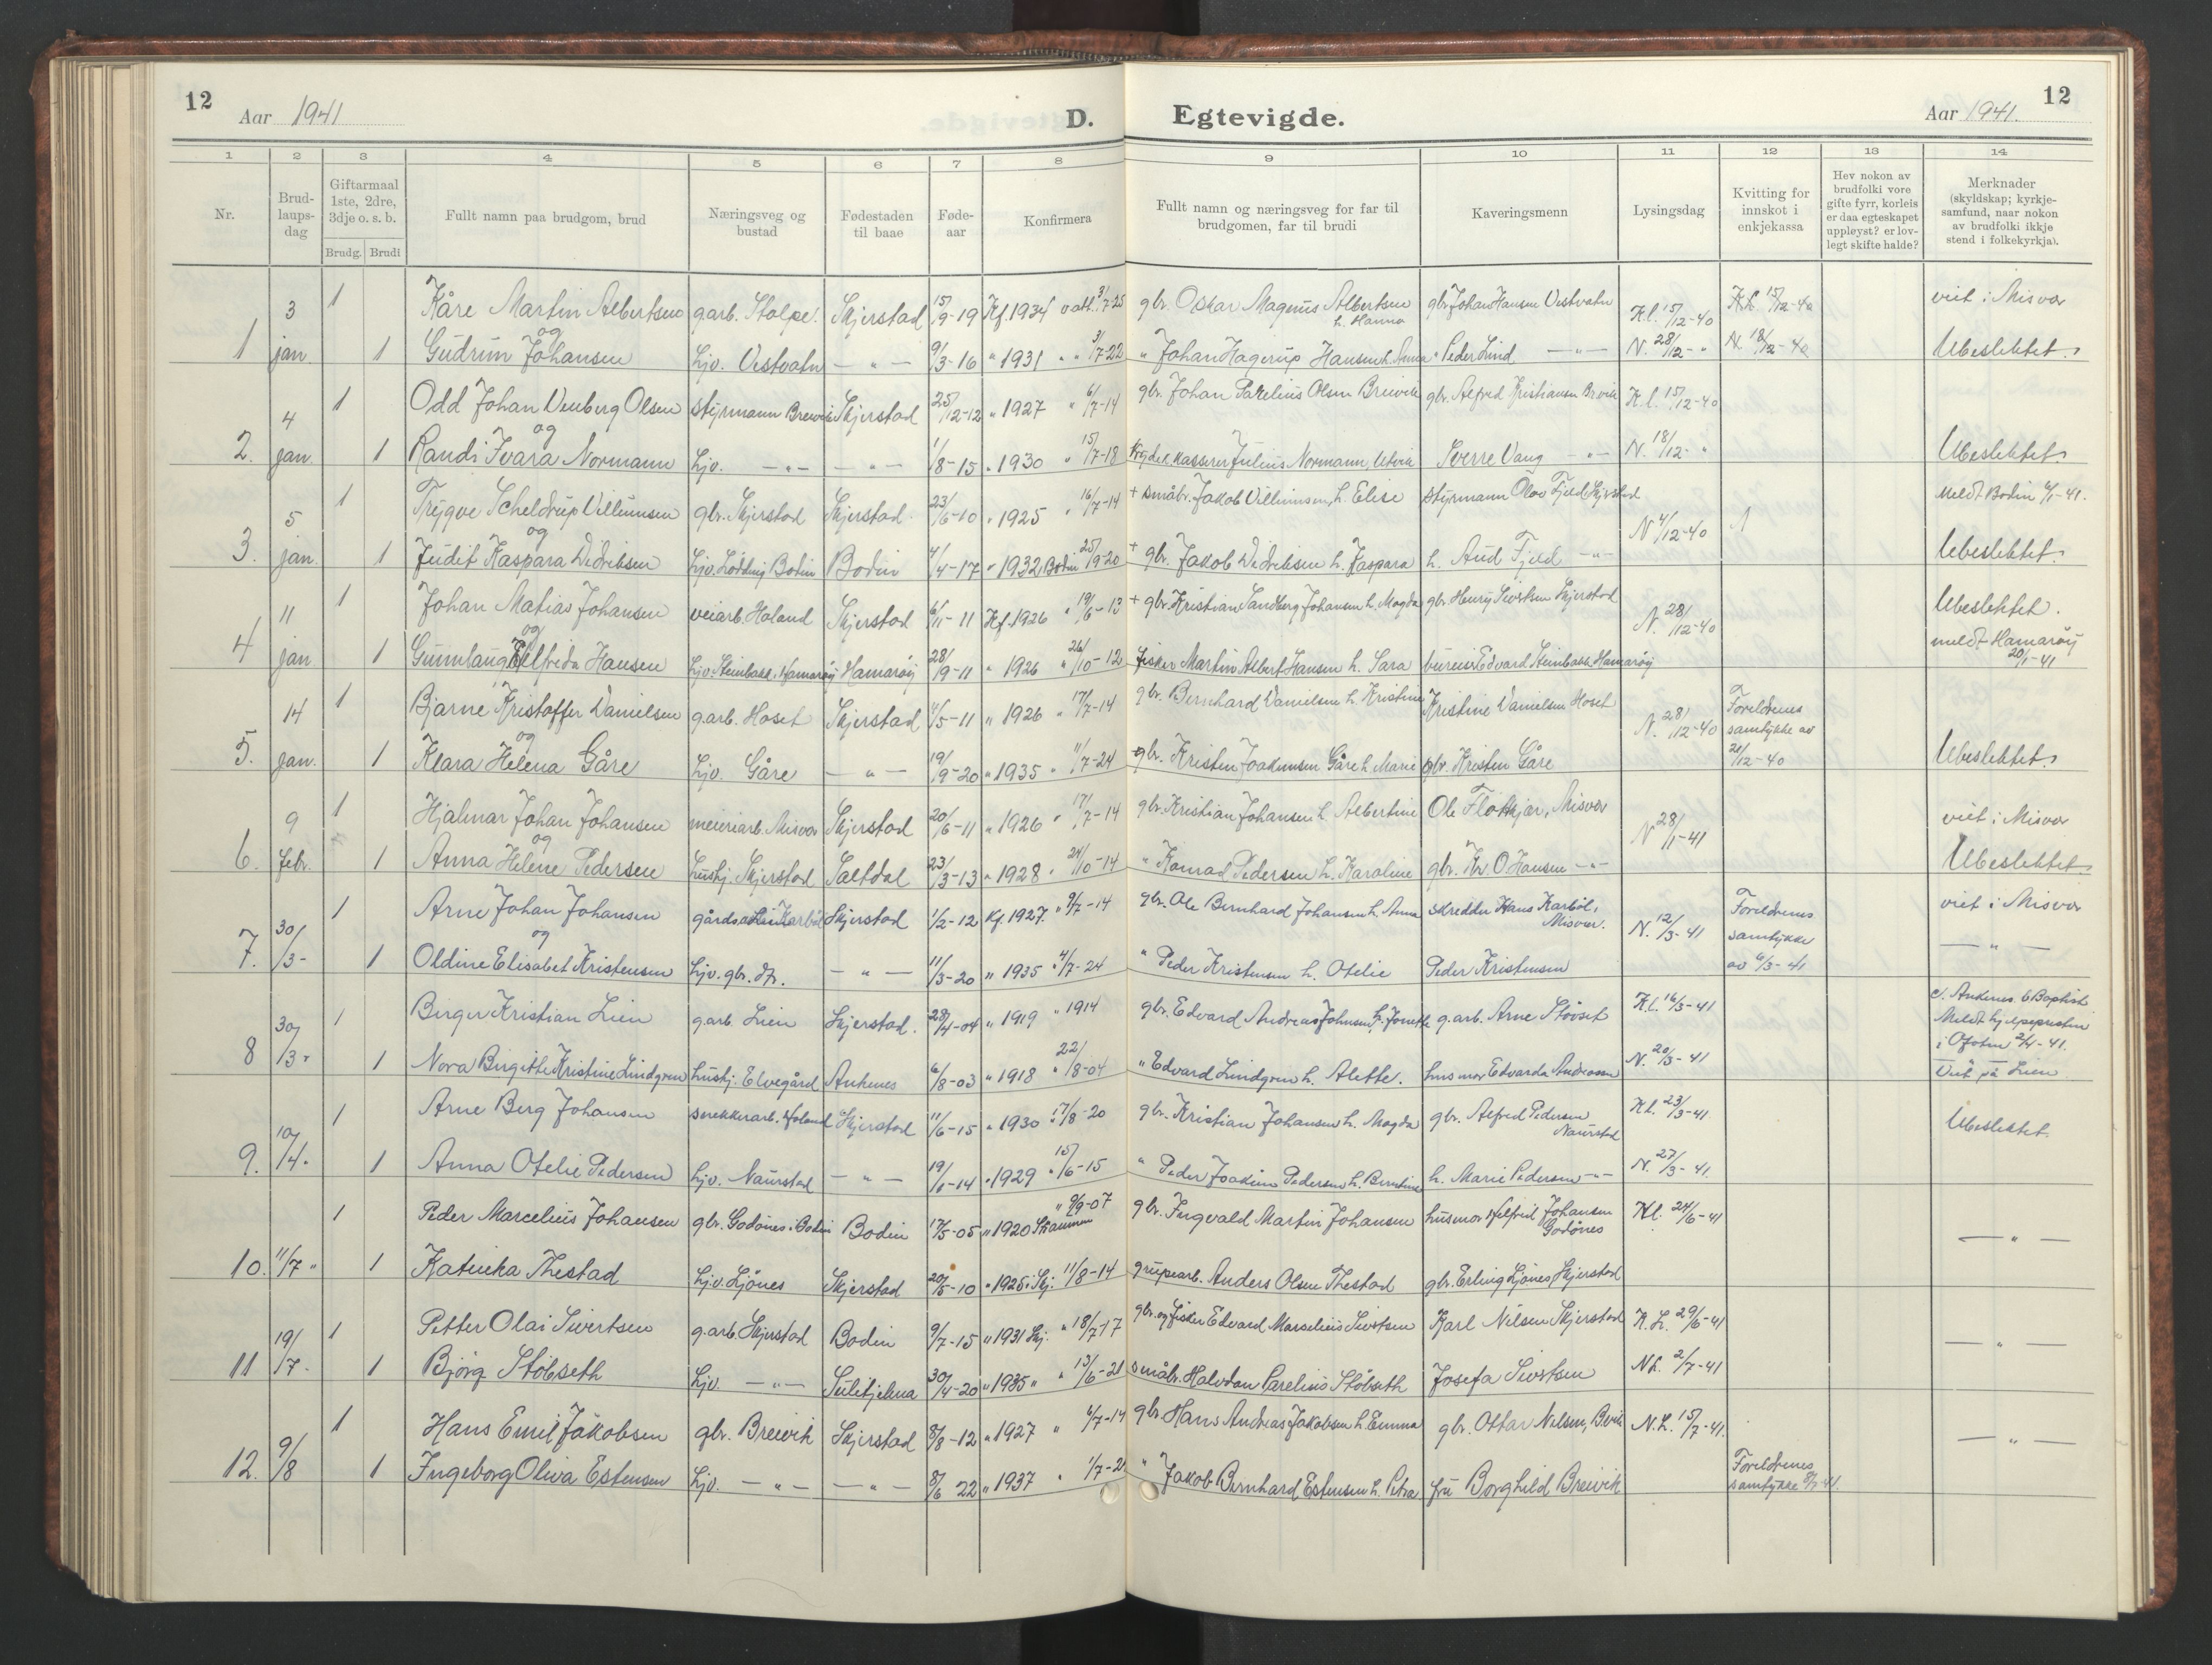 12
Aar 1941
D.
Egtevigde.
Aar 1941.
12
1 2 3 4 5 6 7 8 9 10 11 12 13 14
Nr.
Brud-
laups-
dag
Giftarmaal
1ste, 2dre,
3dje o. s. b.
Brudg. Brudi
Fullt namn paa brudgom, brud
Næringsveg og
bustad
Fødestaden
til baae
Føde-
aar
Konfirmera
Fullt namn og næringsveg for far til
brudgomen, far til brudi
Kaveringsmenn
Lysingsdag
Kvitting for
innskot i
enkjekassa
Hev nokon av
brudfolki vore
gifte fyrr, korleis
er daa egteskapet
uppleyst? er lov-
legt skifte halde?
Merknader
(skyldskap; kyrkje-
samfund, naar nokon
av brudfolki ikkje
stend i folkekyrkja).
3 1 Kåre Martin Albertsen garb. Stolpe. Skjerstad 15/9-19 Kf. 1934 v att. 3/7-25 gbr. Oskar Magnus Albertsen h. Hanna gbr. Johan Hansen Vestvatn K.l. 15/12-40 K.l. 15/12-40 viet i Misvær
og
1 jan. 1 Gudrun Johansen hjv. Vestvatn — " — 9/3-16 " 1931 " " 3/7-22 " Johan Hagerup Hansen h. Anna " Peder Lund — " — N. 28/12- " N. 18/12-40 Ubeslektet.
4 1 Odd Johan Venberg Olsen styrmann Breivik Skjerstad 25/12-12 " 1927 " 6/7-14 gbr. Johan Parelius Olsen Breivik gbr. Alfred Kristiansen Breivik K.l. 15/12-40
og
2. jan. 1 Randi Ivara Normann hjv. — " — — " — 1/8-15 " 1930 " 15/7-18 kasserer Julius Normann, Utvik Sverre Vang — " — N. 18/12- " Ubeslektet.
5 1 Trygve Scheldrup Villumsen gbr. Skjerstad Skjerstad. 23/6-10 " 1925 " 16/7-14 + småbr. Jakob Villumsen, h. Elise styrmann Olav Fjeld Skjerstad N 4/12-40 1 Meldt Bodin 6/1-41.
og
3. jan. 1 Judit Kaspara Didriksen hjv. Løding Bodin Bodin 4/4-17 " 1932 Bodin 25/9-20 + gbr. Jakob Didriksen h. Kaspara h. Aud Fjeld — " — Ubeslektet.
11 1 Johan Matias Johansen veiarb. Holand Skjerstad 6/11-11 Kf. 1926 " 19/6-13 + gbr. Kristian Sandberg Johansen h. Magda gbr. Henry Sivertsen Skjerstad N. 28/12-40 Ubeslektet.
og
4 jan 1 Gunnlaug Elfrida Hansen hjv. Steinbakk, Hamarøy Hamarøy 28/9-11 " 1926 " 26/10-12 fisker Martin Albert Hansen h. Sara bureis. Edvard Steinbakk, Hamarøy meldt Hamarøy
20/1-41
14 1 Bjarne Kristoffer Danielsen garb. Hoset Skjerstad 4/5-11 " 1926 " 17/7-14 gbr. Bernhard Danielsen h. Kristine Kristine Danielsen Hoset N. 28/12-40 Foreldrenes
samtykke av
20/12-40
og
5. jan. 1 Klara Helena Gåre hjv. Gåre — " — 19/9-20 " 1935 " 11/7-24 gbr. Kristen Joakimsen Gåre h. Marie gbr. Kristen Gåre Ubeslektet.
9 1 Hjalmar Johan Johansen meieriarb. Misvær Skjerstad 20/6-11 " 1926 " 17/7-14 gbr. Kristian Johansen h. Albertine Ole Flottkjær, Misvær N 28/1-41 viet i Misvær
og
6. febr. 1 Anna Helene Pedersen hushj. Skjerstad Saltdal 23/3-13 " 1928 " 24/10-14 " Konrad Pedersen h. Karoline gbr. Kr. O Hansen — " — Ubeslektet.
1 Arne Johan Johansen gårdsarb. Karbøl Skjerstad 1/2-12 Kf. 1927. " 9/7-14 gbr. Ole Bernhard Johansen h. Anna skredder Hans Karbøl, Misvær. N. 12/3-41 Foreldrenes
samtykke
av 6/3-41 viet i Misvær
og
7. 30/3- 1 Oldine Elisabet Kristensen hjv. gbr. dtr. — " — 11/3-20 " 1935 " 4/7-24 " Peder Kristensen h. Otelie Peder Kristensen — " —
1 Birger Kristian Lien garb. Lien Skjerstad. 28/4-04 " 1919 " 1914 gbr. Edvard Andreas Johnsen, h. Jonette g.arb. Arne Støvset K.l. 16/3-41 Ankenes. b Baptist
Meldt hjelpepresten
i Ofoten 2/4-41.
8 30/3- 1 Nora Birgitte Kristine Lindgren hushj. Elvegård Ankenes 6/8-03 " 1918 " 22/8-04 " Edvard Lindgren h. Alette. husmor Edvarda Andreassen N. 20/3-41 Viet på Lien
1 Arne Berg Johansen sprekkerarb. Holand Skjerstad 11/6-15 " 1930 " 17/8-20 gbr. Kristian Johansen h. Magda gbr. Alfred Pedersen Naurstad K.l. 23/3-41 Ubeslektet.
9. 10/4. 1 Anna Otelie Pedersen hjv. Naurstad — " — 19/1-14 " 1929 " 15/6-15 " Peder Joakim Pedersen h. Berntine h. Marie Pedersen — " — N. 27/3-41.
1 Peder Marcelius Johansen gbr. Godønes i Bodin Bodin 17/5-05 " 1920 Straumen " 9/9-07 gbr. Ingvald Martin Johansen husmor Helfrid Johansen Godønes Kl. 24/6-41 — " —
10. 11/7 " 1 Katinka Thestad hjv. Ljønes Skjerstad 20/5-10 " 1925 i Skj. 11/8-14 grubearb. Anders Olsen Thestad gbr. Erling Ljønes, Skjerstad
1 Petter Olai Sivertsen g.arb. Skjerstad Bodin 9/7-15 " 1931 Skj. " 18/7-17 gbr. og fisker Edvard Marselius Sivertsen Karl Nilsen Skjerstad K.L. 29/6-41 — " —
11 19/7- 1 Bjørg Støbseth hjv. — " — Sulitjelma 30/4-20 " 1935 " " 13/6-21 småbr. Halvdan Parelius Støbseth Josefa Sivertsen NL. 2/7-41
1 Hans Emil Jakobsen gbr. Breivik Skjerstad 8/8-12 " 1927 " 6/7-14 gbr. Hans Andreas Jakobsen h. Emma gbr. Ottar Nilsen, Breivik N.L. 15/7-41. — " —
12. 9/8 1 Ingeborg Oliva Estensen hjv. — " — — " — 8/6 22 " 1937 " 1/7-2 " Jakob Bernhard Estensen h. Petra fru Borghild Breivik Foreldrenes
samtykke 8/7-41.